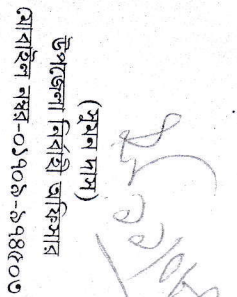 (সুমন দাস)
উপজেলা নির্বাহী অফিসার
মোবাইল নম্বর-০১৭০৯-৯৭৪৫০৩